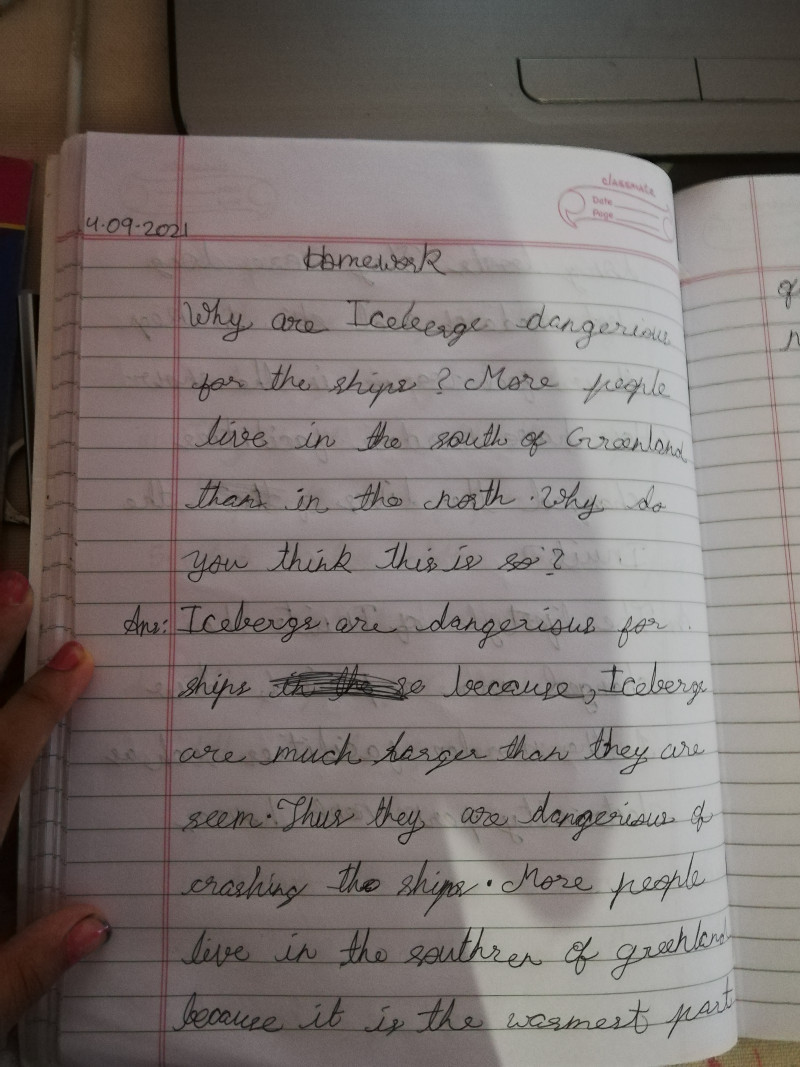 classmate
Date
Page
4.09.2021
Homework
Why are Iceleerge dangerious
for the ships? More people
live in the south of Greenland
than in the north. Why do
you think this is so?
Ans: Icebergs are dangerious for
ships because, Icebergs
are much larger than they are
seem. Thus they are dangerious of
crashing the ships. More people
live in the southren of greenland
because it is the warmest part
of